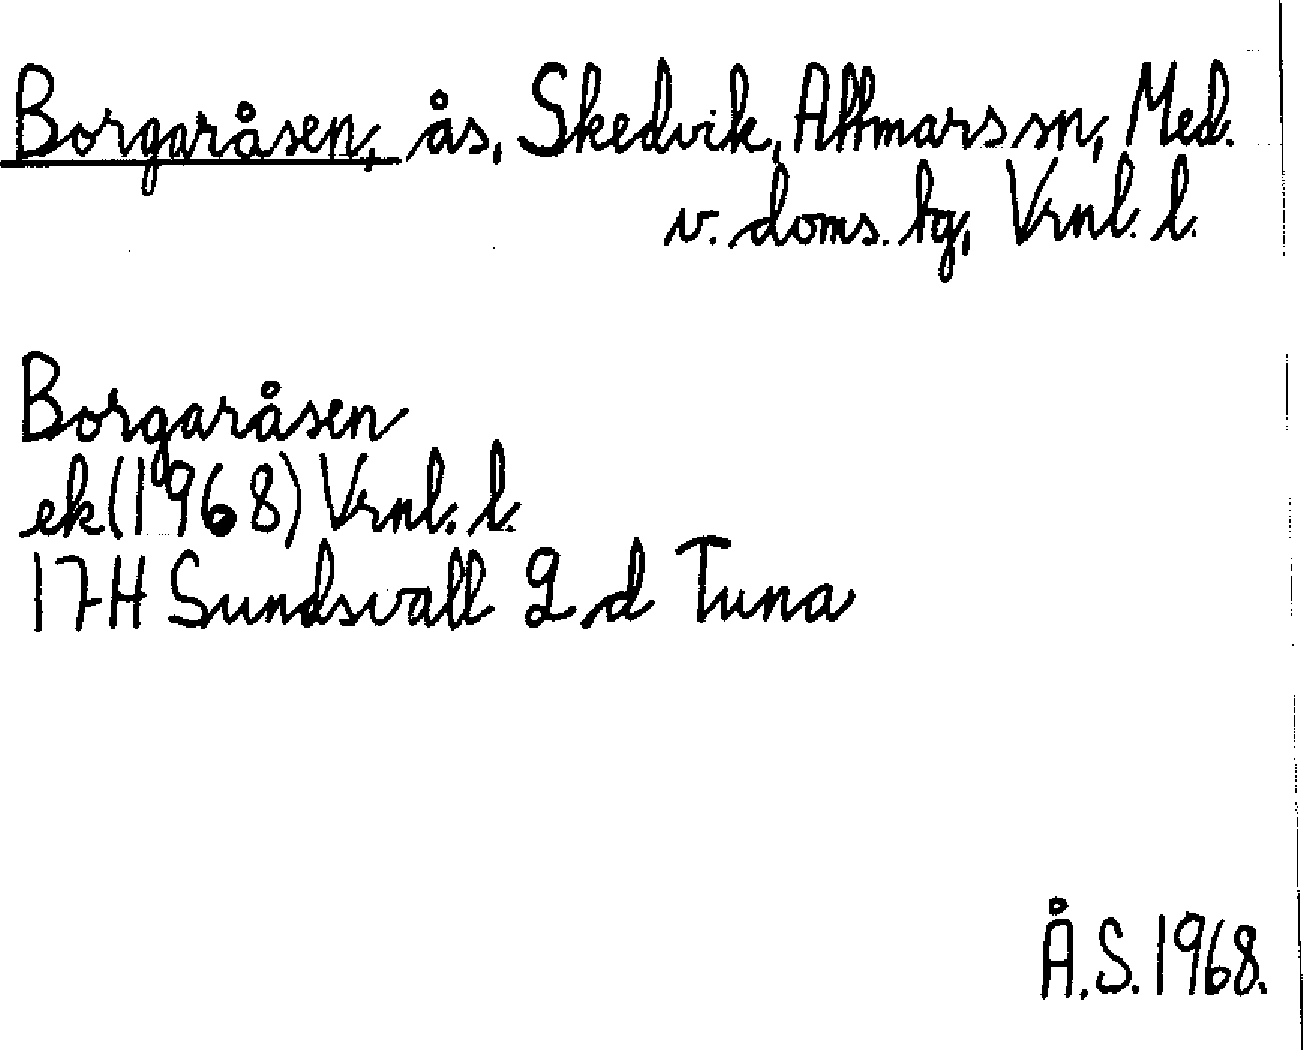 Borgaråsen, ås, Skedvik, Attmars sn, Med.
v. doms. tg, Vrnl. l.
Borgaråsen
ek (1968) Vrnl. l.
17H Sundsvall 2 d Tuna
Å.S. 1968.